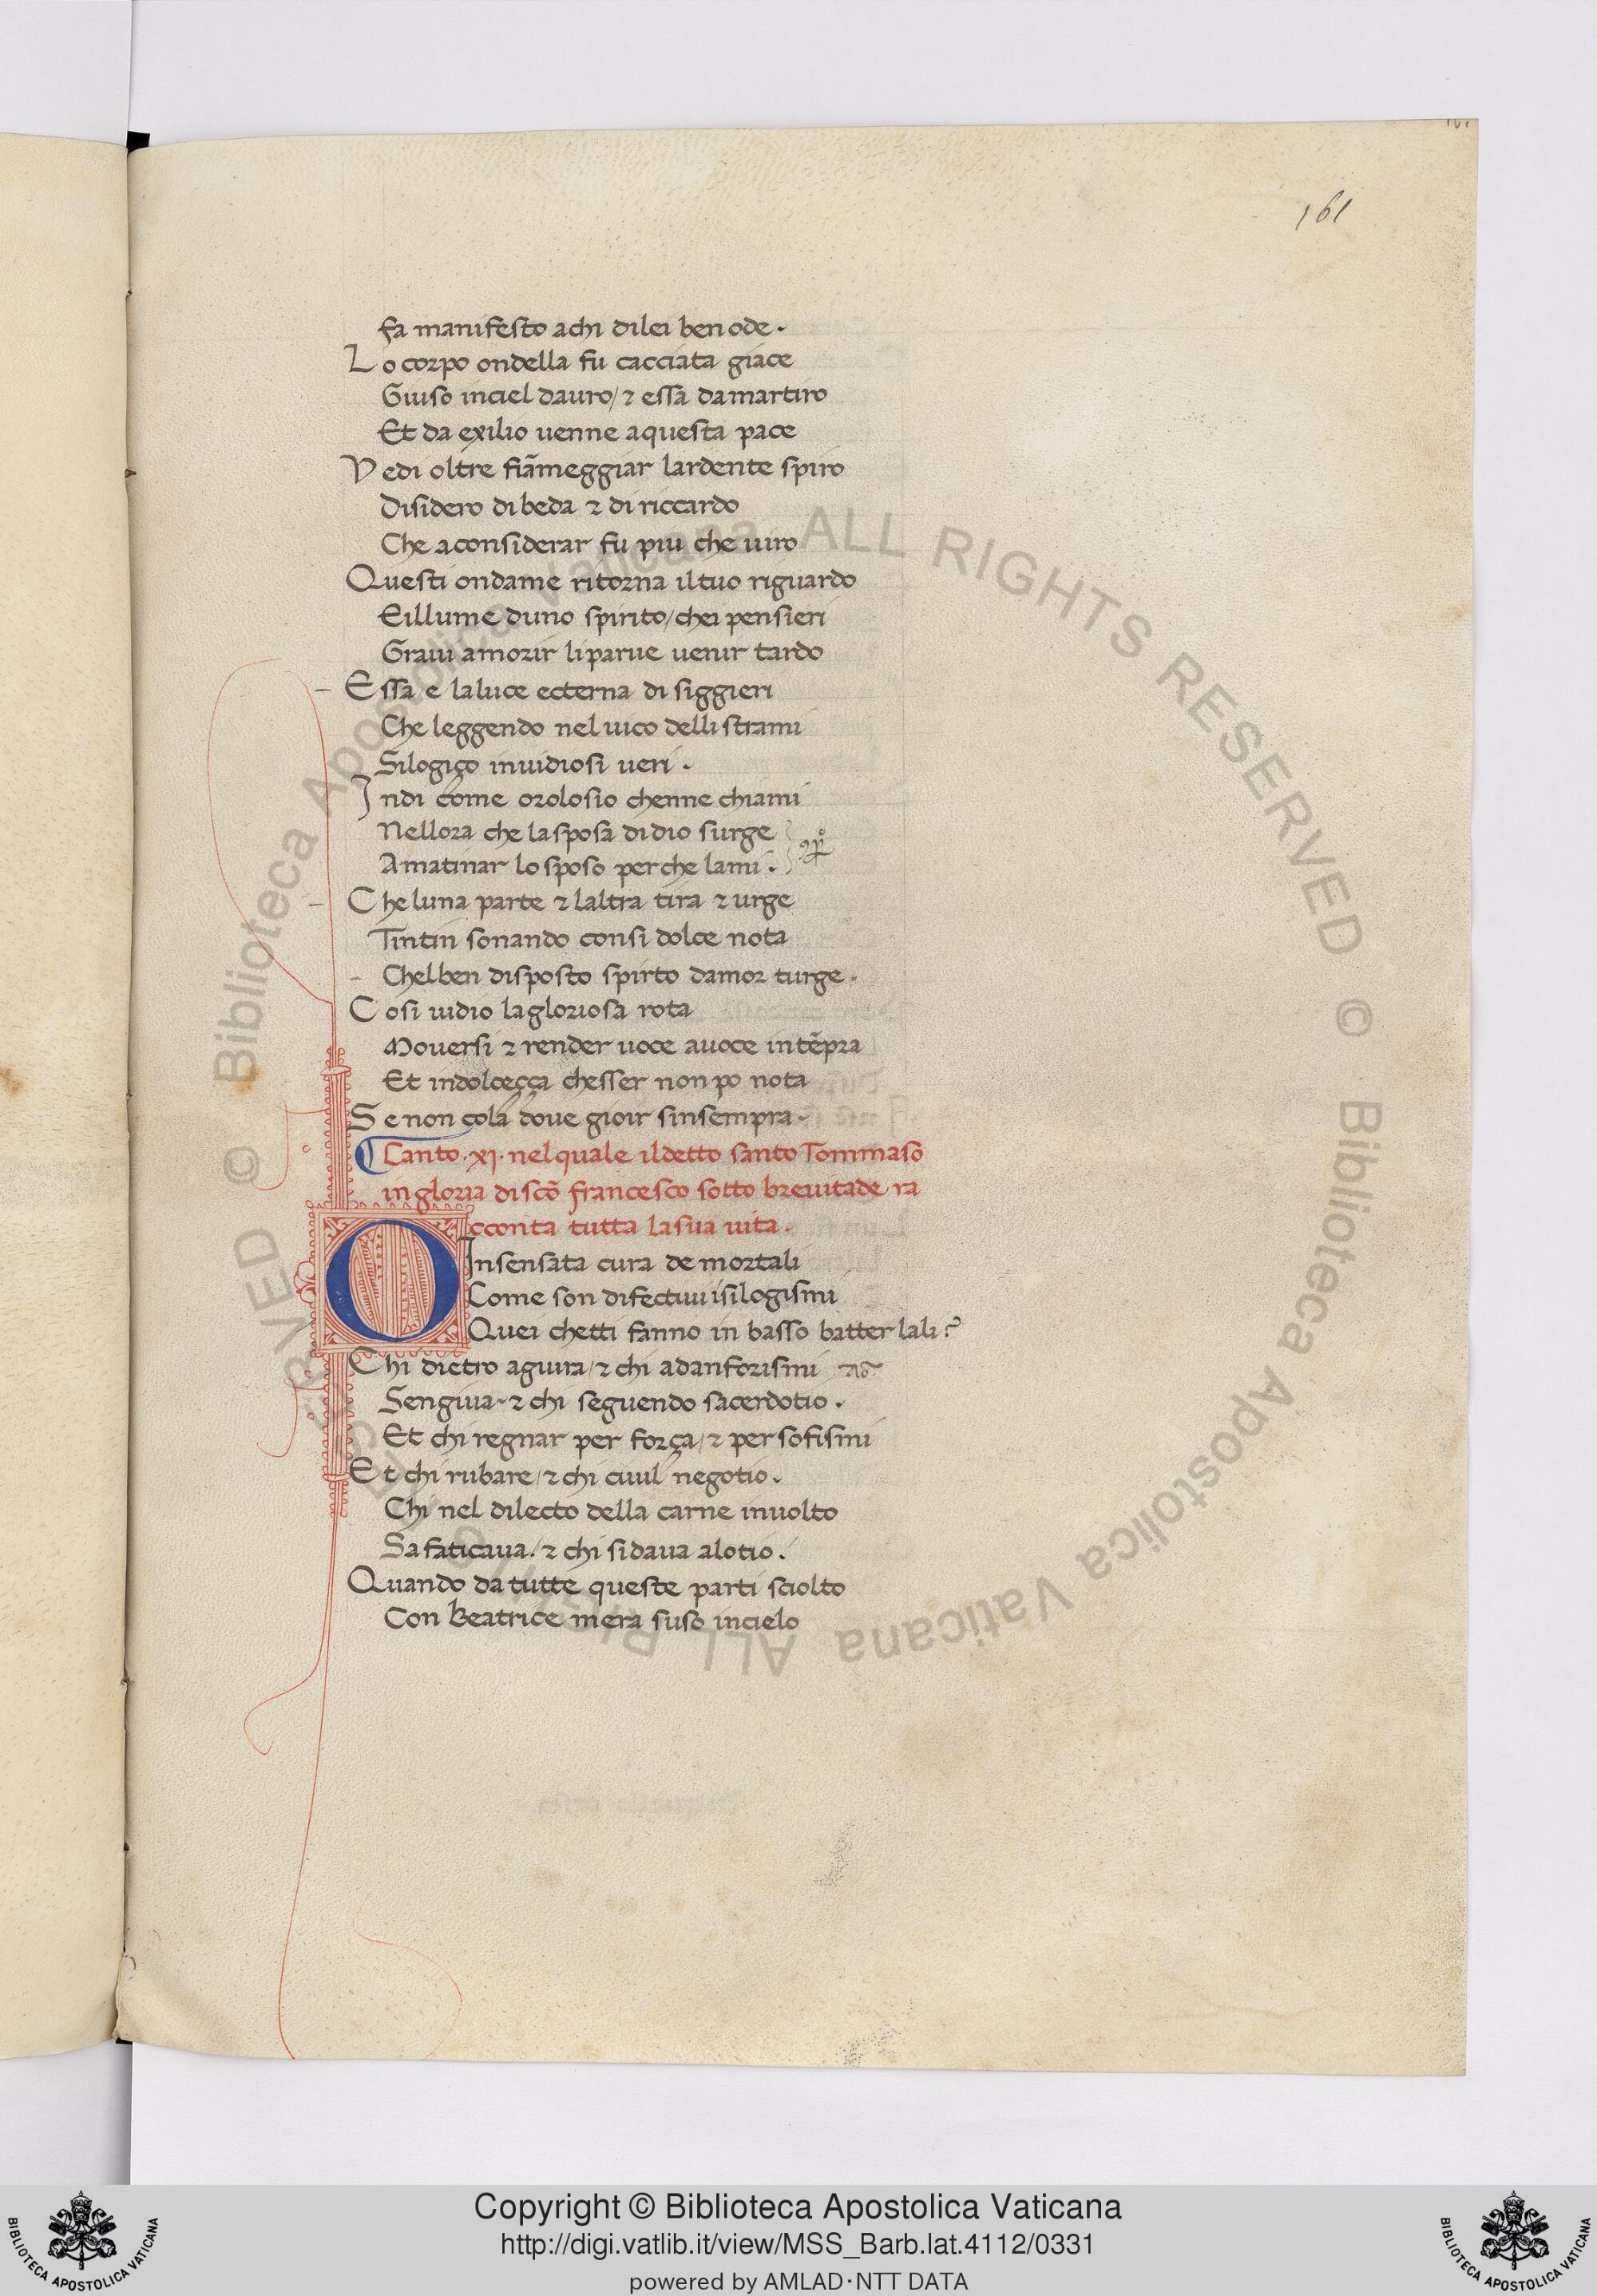 161
fa manifesto achi dilei ben ode.
Lo corpo ondella fu cacciata giace
Giuso inciel dauro/ ⁊ essa damartiro
Et da exilio uenne aquesta pace
Vedi oltre fiãmeggiar lardente spiro
Disidero di beda ⁊ di riccardo
Che aconsiderar fu piu che uiro
Questi ondame ritorna iltuo riguardo
Eillume duno spirito/ chei pensieri
Graui amorir liparue uenir tardo
Essa e laluce ecterna di siggieri
Che leggendo nel uico delli strami
Silogiço inuidiosi ueri.
Indi come orolosio chenne chiami
Nellora che lasposa didio surge
Amatinar lo sposo perche lami.
Che luna parte ⁊ laltra tira ⁊ urge
Tintin sonando consi dolce nota
Chelben disposto spirto damor turge.
Cosi uidio lagloriosa rota
Mouersi ⁊ render uoce auoce intẽpra
Et indolceçça chesser non po nota
Se non cola doue gioir sinsempra.
Canto .xj. nelquale ildetto santo Tommaso
in gloria di scõ francesco sotto breuitade ra
cconta tutta lasua uita.
O Insensata cura de mortali
Come son difectiui isilogismi
Quei chetti fanno in basso batter lali?
Chi dietro aguira/ ⁊ chi adanforismi
Sengiua. ⁊ chi seguendo sacerdotio.
Et chi regnar per força/ ⁊ per sofismi
Et chi rubare/ ⁊ chi ciuil negotio.
Chi nel dilecto della carne inuolto
Safaticaua. ⁊ chi sidaua alotio.
Quando da tutte queste parti sciolto
Con Beatrice mera suso incielo
© Biblioteca Apostolica Vaticana ALL RIGHTS RESERVED © Biblioteca Apostolica Vaticana ALL RIGHTS RESERVED
Copyright © Biblioteca Apostolica Vaticana
http://digi.vatlib.it/view/MSS_Barb.lat.4112/0331
powered by AMLAD·NTT DATA
BIBLIOTECA APOSTOLICA VATICANA
BIBLIOTECA APOSTOLICA VATICANA